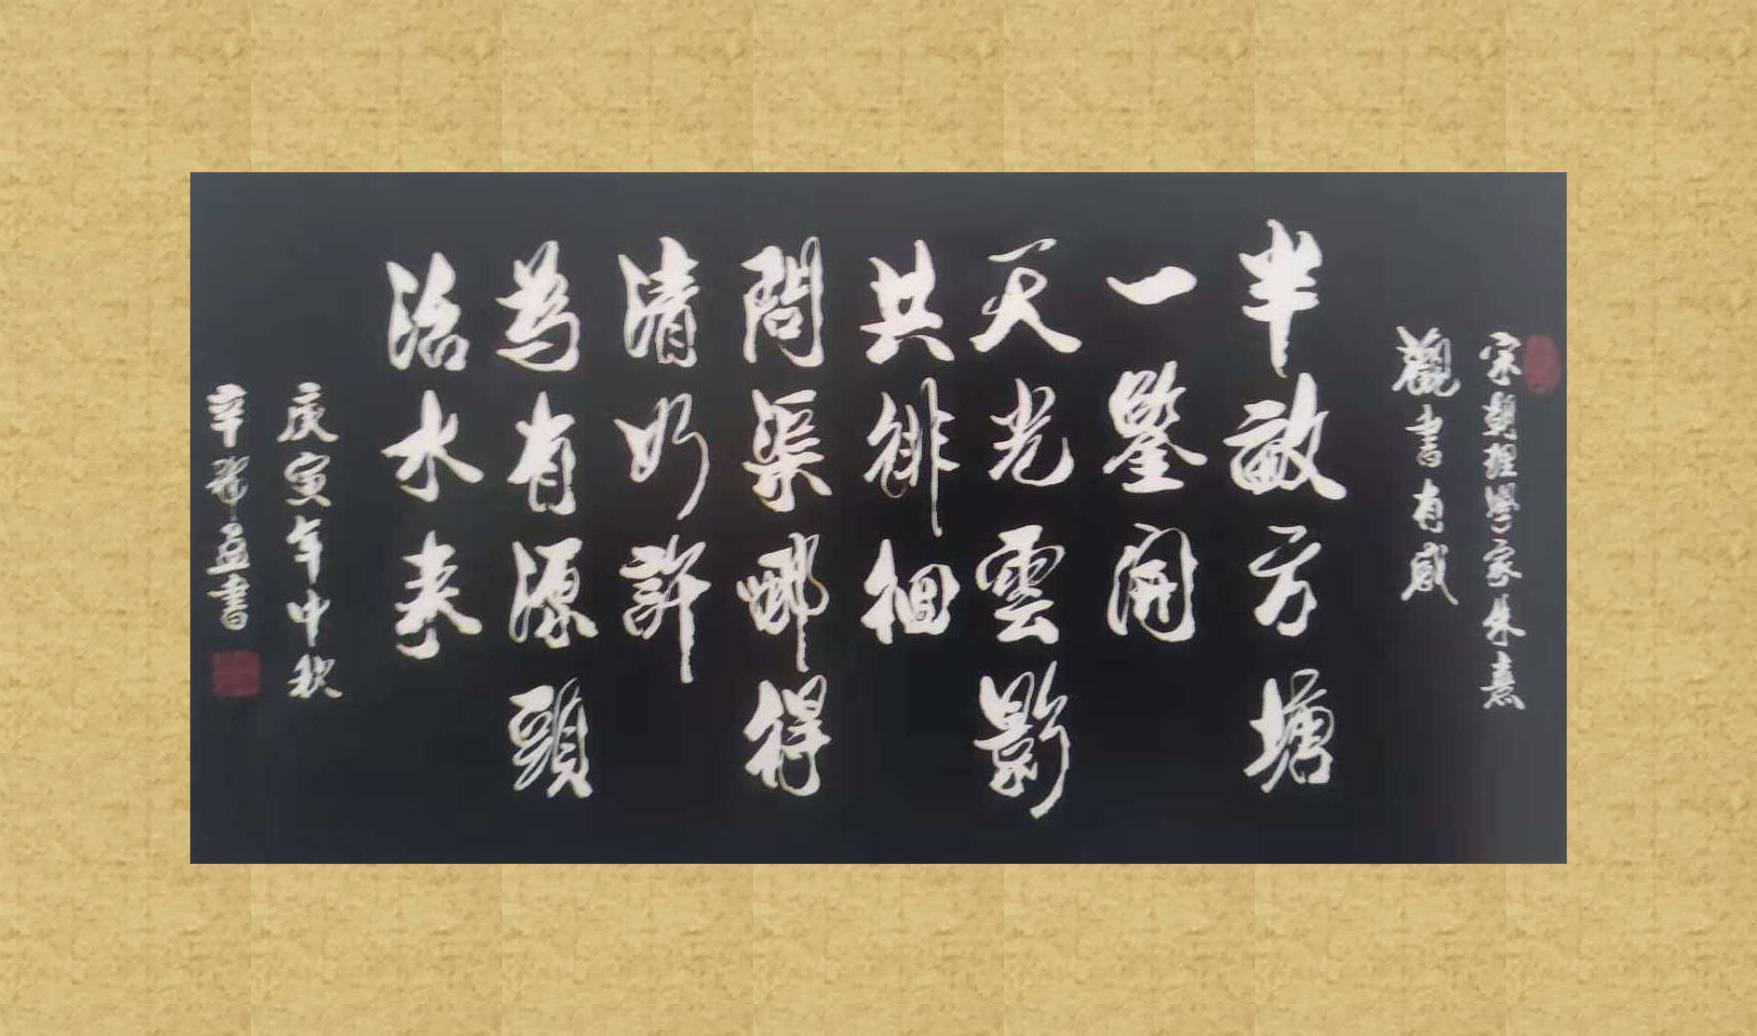 宋朝理學家朱熹
觀書有感
半畝方塘
一鑒開
天光雲影
共徘徊
問渠哪得
清如許
為有源頭
活水来
庚寅年中秋
辛書